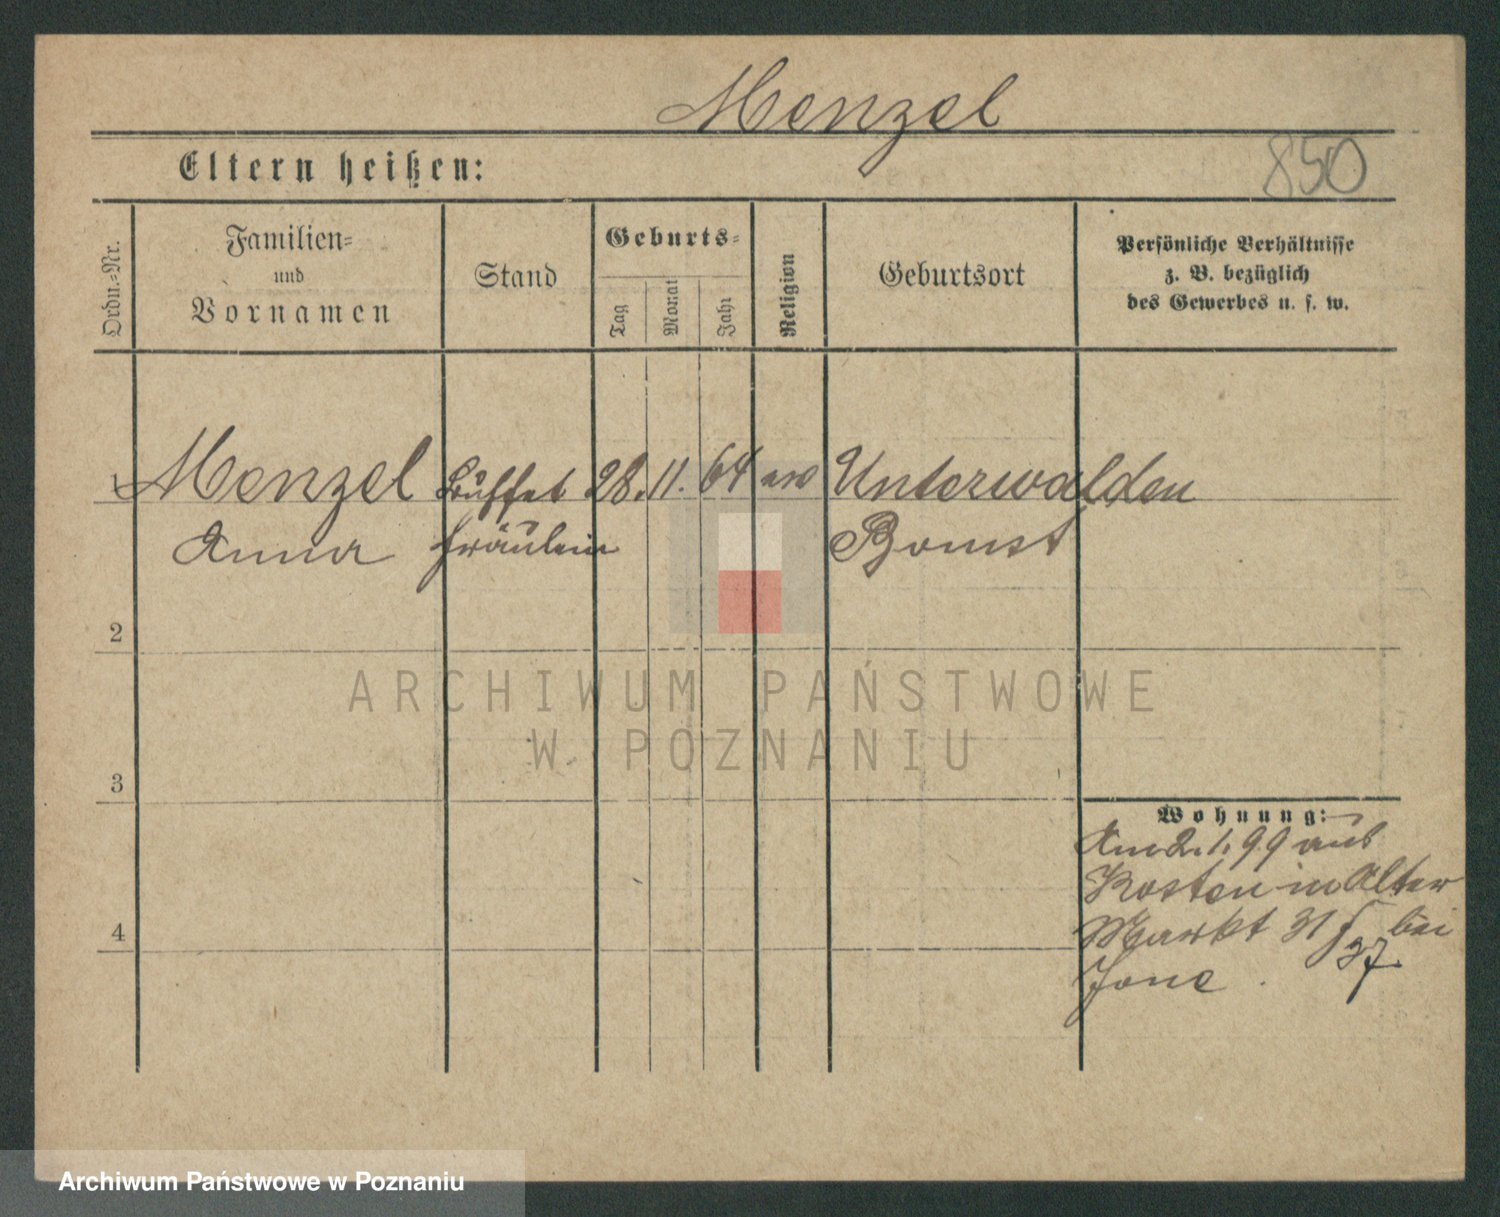 Menzel
850
Eltern heißen:
Ordn.-Nr.
Familien- und Vornamen
Stand
Geburts-
Tag
Monat
Jahr
Religion
Geburtsort
Persönliche Verhältnisse
z. B. bezüglich
des Gewerbes u. s. w.
1 Menzel Buffet 28. 11. 64 Unterwalden
Anna fräulein Bomst
2
ARCHIWUM PAŃSTWOWE
W POZNANIU
3
Wohnung:
Am 2.1.99 aus
Kosten in Alter
Markt 31 bei
37.
4
Archiwum Państwowe w Poznaniu